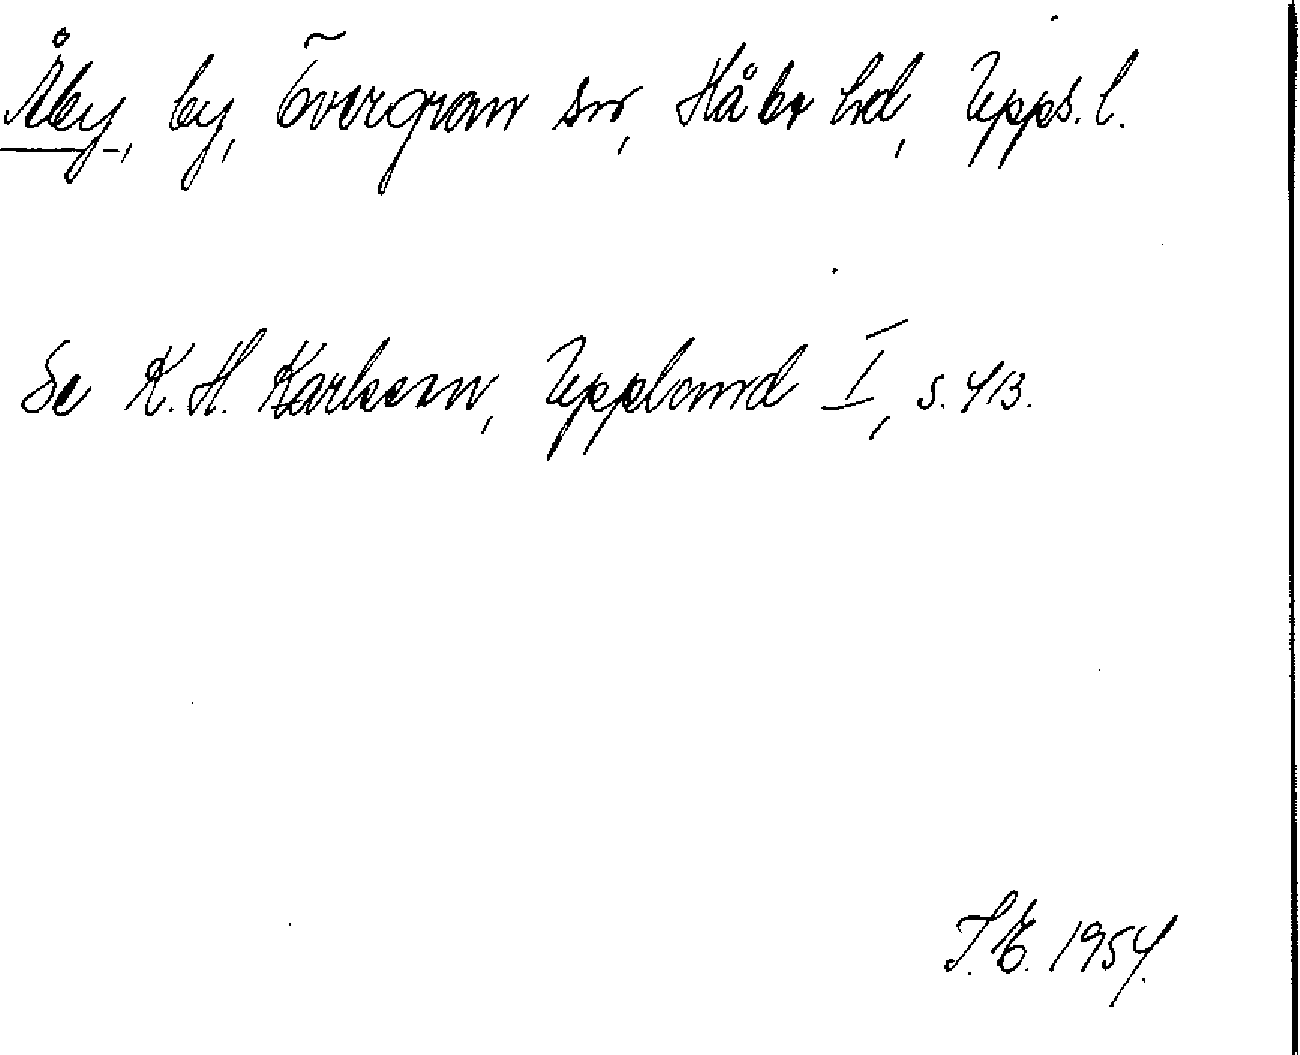 Åby, by, Övergran sn, Håbo hd, Upps. l.
Se K. H. Karlsson, Uppland I, s. 413.
I. E. 1954.